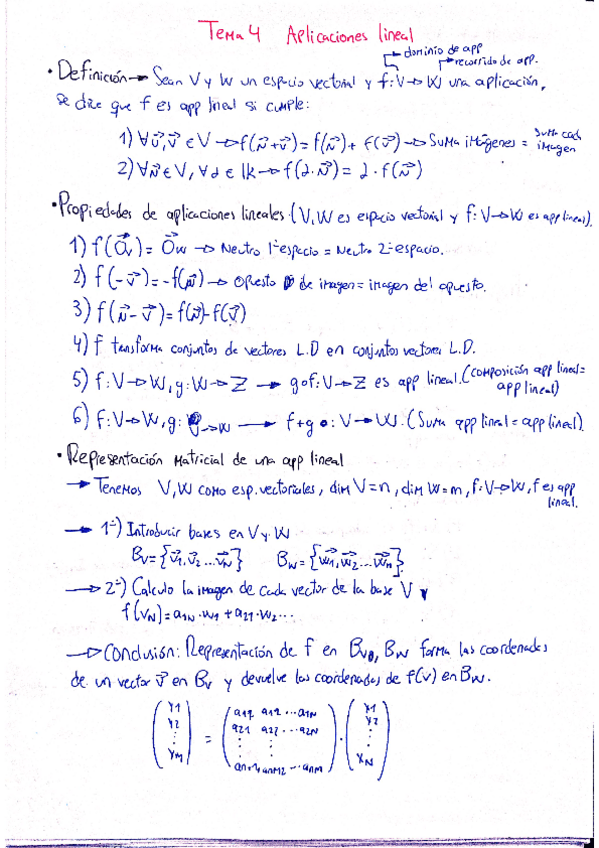 Tema 4 Aplicaciones lineal
dominio de app
recorrido de app.
• Definición → Sean V y W un espacio vectorial y f: V → W una aplicación,
se dice que f es app lineal si cumple:
1) ∀u⃗, v⃗ ∈ V → f(u⃗+v⃗) = f(u⃗) + f(v⃗) → Suma imágenes = suma cada imagen
2) ∀u⃗ ∈ V, ∀α ∈ lk → f(α·u⃗) = α·f(u⃗)
• Propiedades de aplicaciones lineales. (V, W es espacio vectorial y f: V → W es app lineal).
1) f(O⃗v) = O⃗w → Neutro 1º espacio = Neutro 2º espacio.
2) f(-v⃗) = -f(u⃗) → Opuesto de imagen = imagen del opuesto.
3) f(u⃗-v⃗) = f(u⃗)-f(v⃗)
4) f transforma conjuntos de vectores L.D en conjuntos vectores L.D.
5) f: V → W, g: W → Z → gof: V → Z es app lineal. (composición app lineal = app lineal)
6) f: V → W, g: → W → f+g : V → W. (Suma app lineal = app lineal).
• Representación matricial de una app lineal
→ Tenemos V, W como esp. vectoriales, dim V = n, dim W = m, f: V → W, f es app lineal.
→ 1º) Introducir bases en V y W
Bv = {v⃗1, v⃗2 ... v⃗n} Bw = {w⃗1, w⃗2 ... w⃗m}
→ 2º) Calculo la imagen de cada vector de la base V
f(vN) = a1N·w1 + a21·w2...
→ Conclusión: Representación de f en Bv, Bw forma las coordenadas
de un vector v⃗ en Bv y devuelve las coordenadas de f(v) en Bw.
(y1 y2 ⋮ yM) = (a11 a12 ... a1N a21 a22 ... a2N ⋮ ⋮ ... anM) · (x1 x2 ⋮ xN)